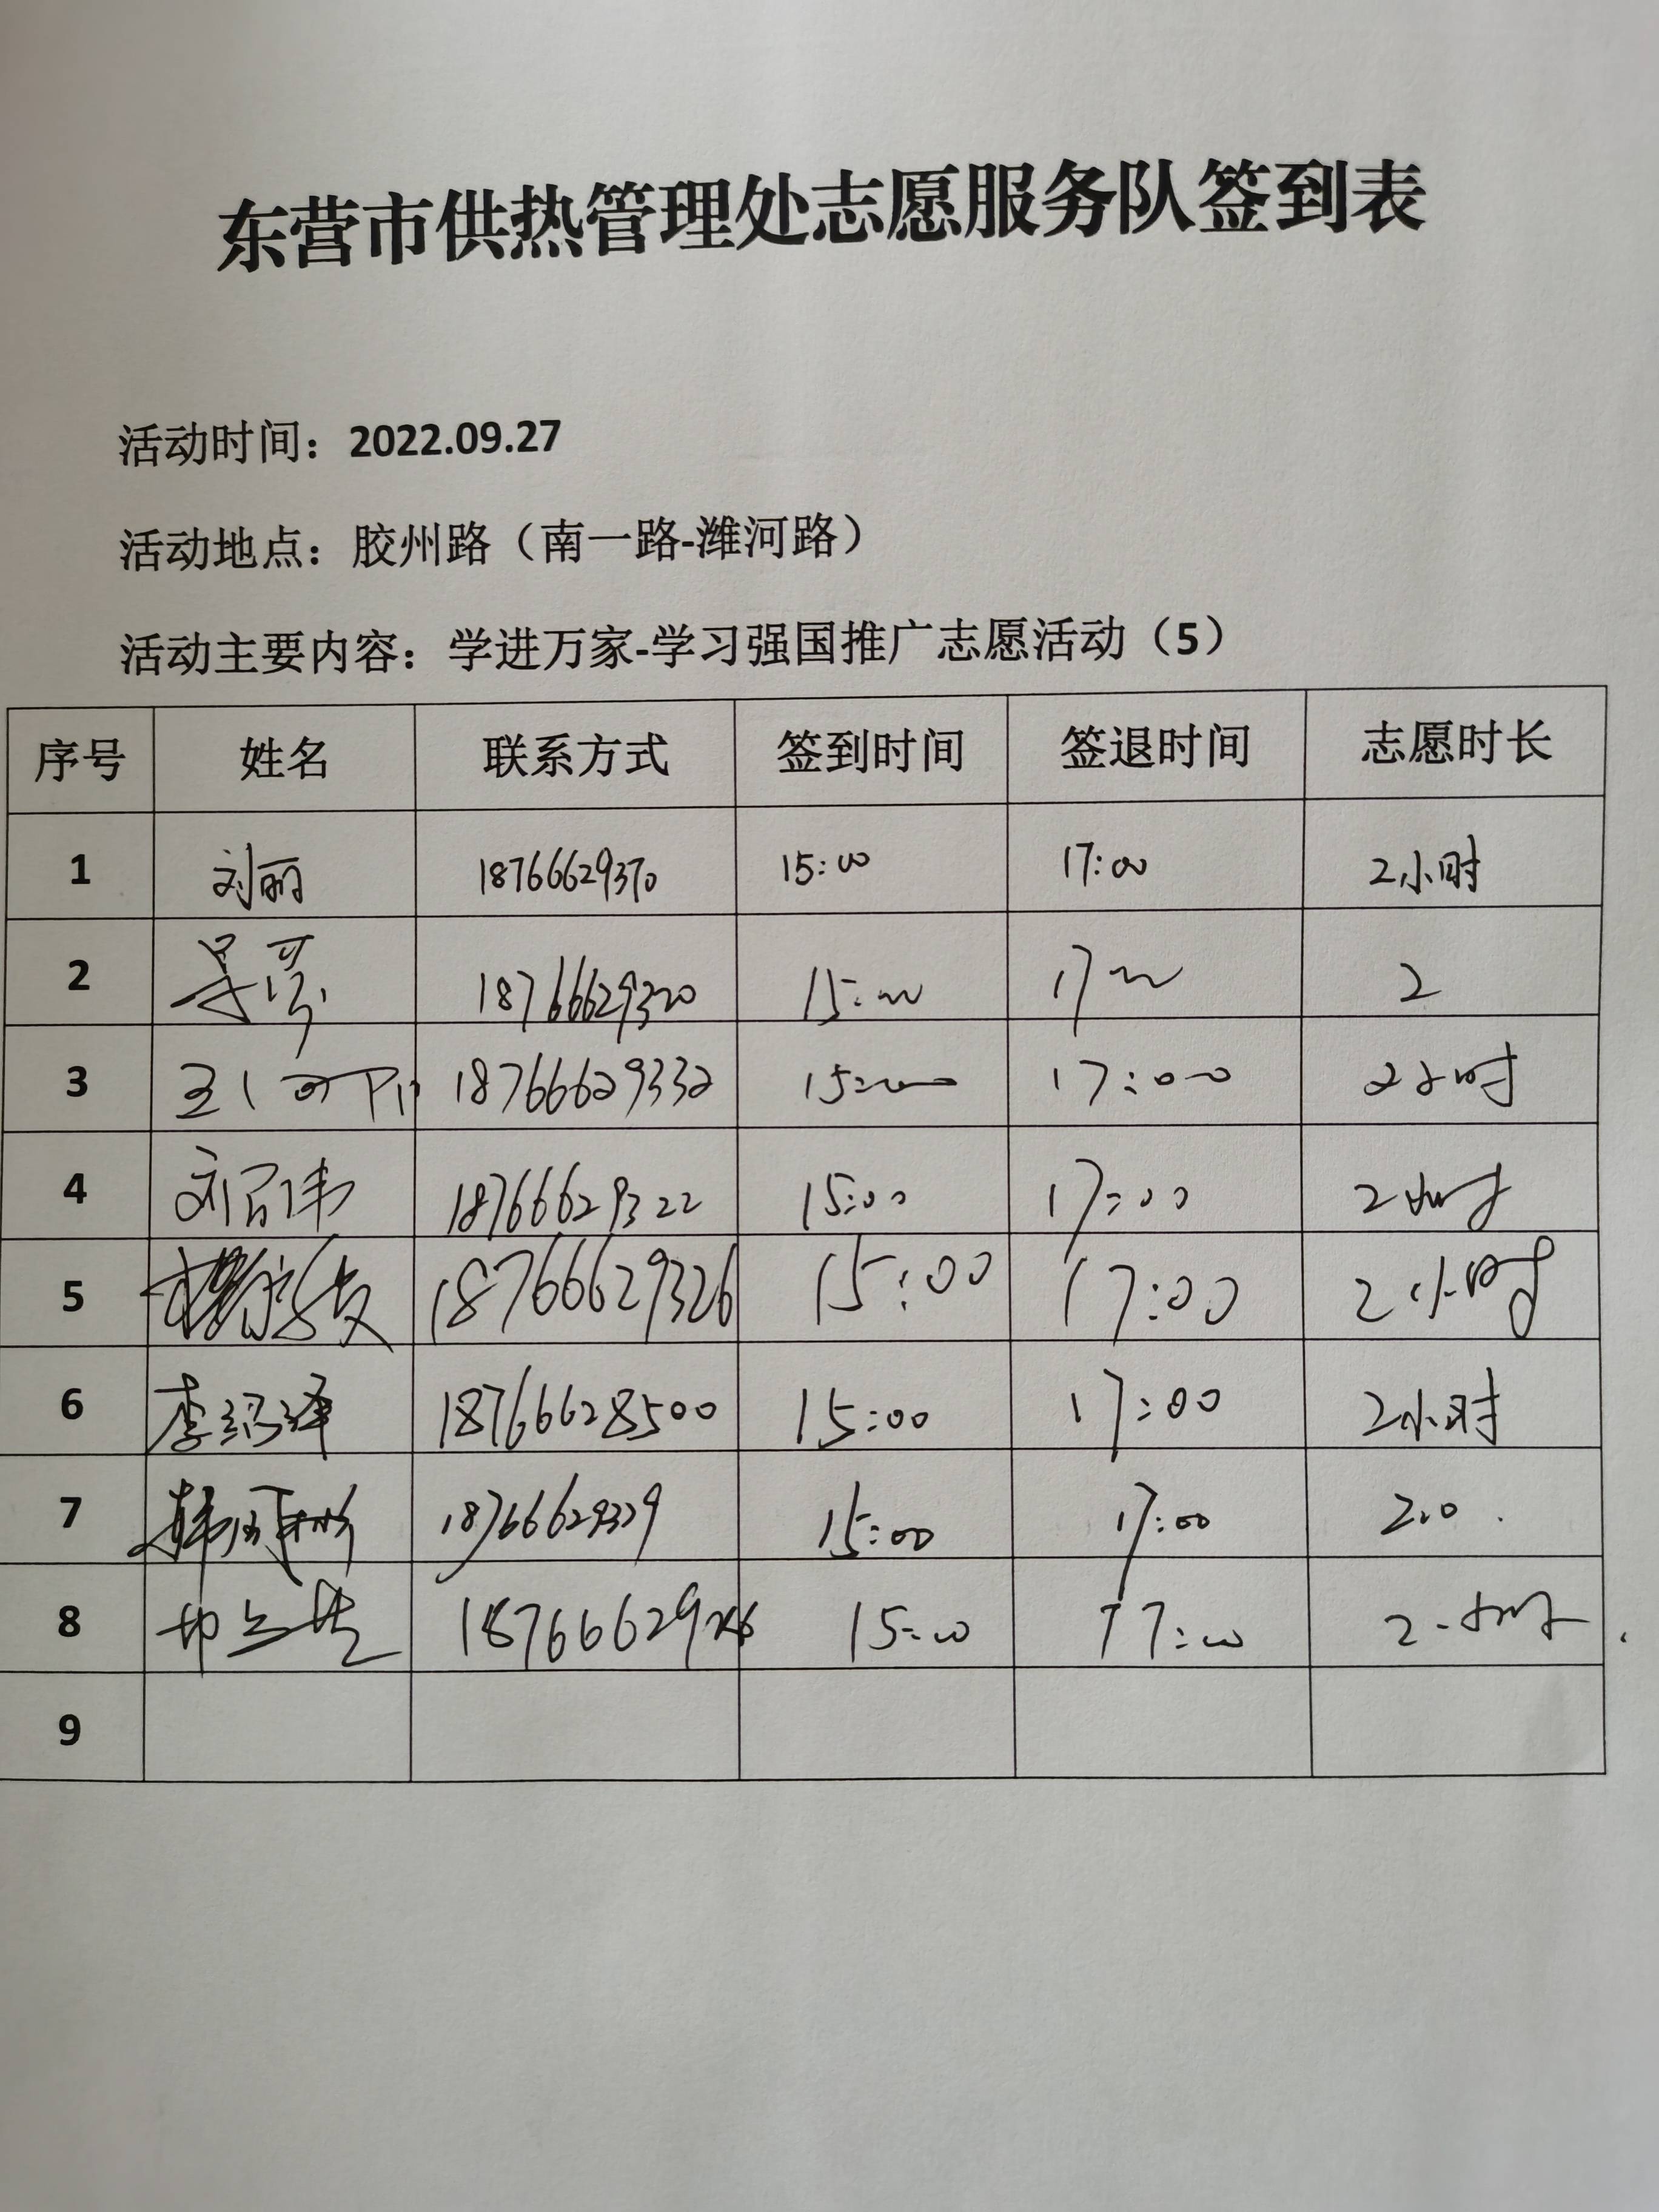 东营市供热管理处志愿服务队签到表
活动时间：2022.09.27
活动地点：胶州路（南一路-潍河路）
活动主要内容：学进万家-学习强国推广志愿活动（5）
序号 姓名 联系方式 签到时间 签退时间 志愿时长
1 刘丽 18766629370 15:00 17:00 2小时
2 18766629320 15:00 17:00 2
3 18766629332 15:00 17:00 2小时
4 18766629322 15:00 17:00 2小时
5 18766629326 15:00 17:00 2小时
6 李绍泽 18766628500 15:00 17:00 2小时
7 18766629329 15:00 17:00 2.0
8 15:00 17:00 2小时
9